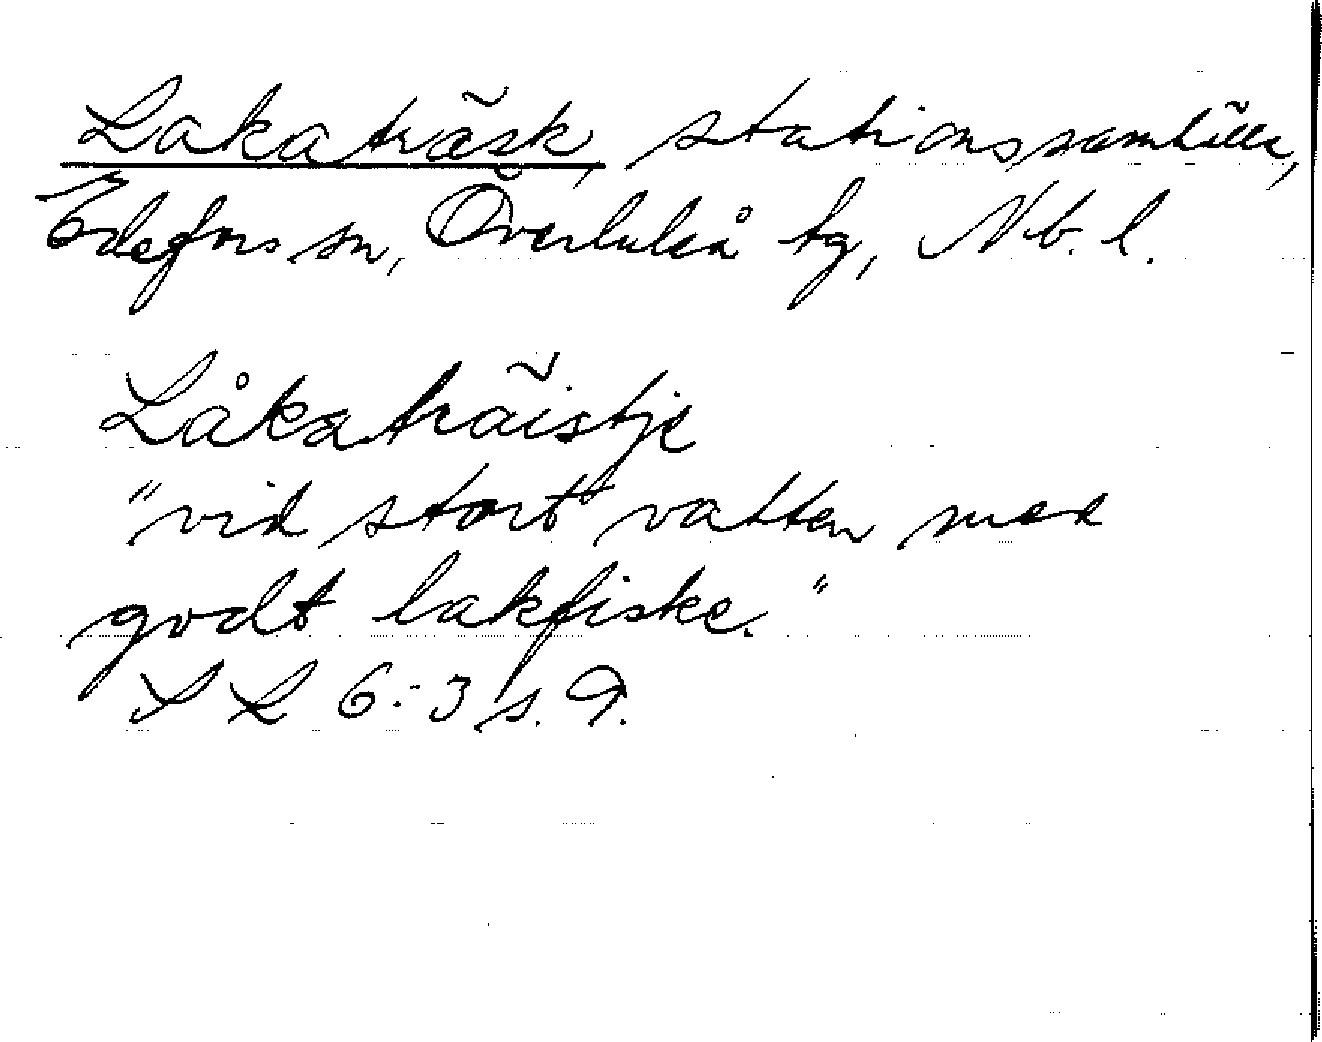 Lakaträsk, stationssamhälle,
Edefors sn, Överluleå tg, Nb. l.
Låkaträistje
"vid stort vatten med
godt lakfiske."
S L 6:3 s. 9.